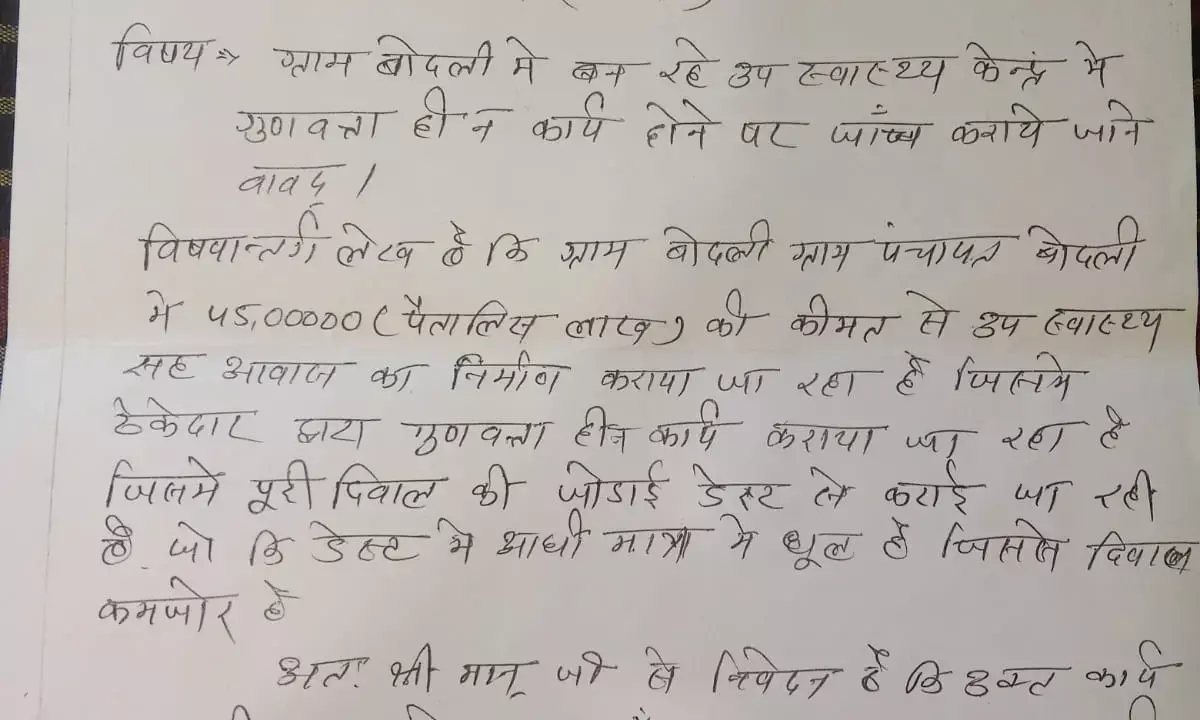 विषय ⇒ ग्राम बोदली मे बन रहे उप स्वास्थ्य केन्द्रं मे
गुणवत्ता हीन कार्य होने पर जांच कराये जाने
वावद् ।
विषयान्तर्ग लेख है कि ग्राम बोदली ग्राम पंचायत बोदली
मे 45,00000 (पैतालिस लाख) की कीमत से उप स्वास्थ्य
सह आवास का निर्माण कराया जा रहा है जिसमे
ठेकेदार द्वारा गुणवत्ता हीन कार्य कराया जा रहा है
जिसमें पूरी दिवाल की जोडाई डेस्ट से कराई जा रही
है. जो कि डेस्ट मे आधी मात्रा मे धूल है जिससे दिवाल
कमजोर है
अतः श्री मान् जी से निवेदन है कि उक्त कार्य